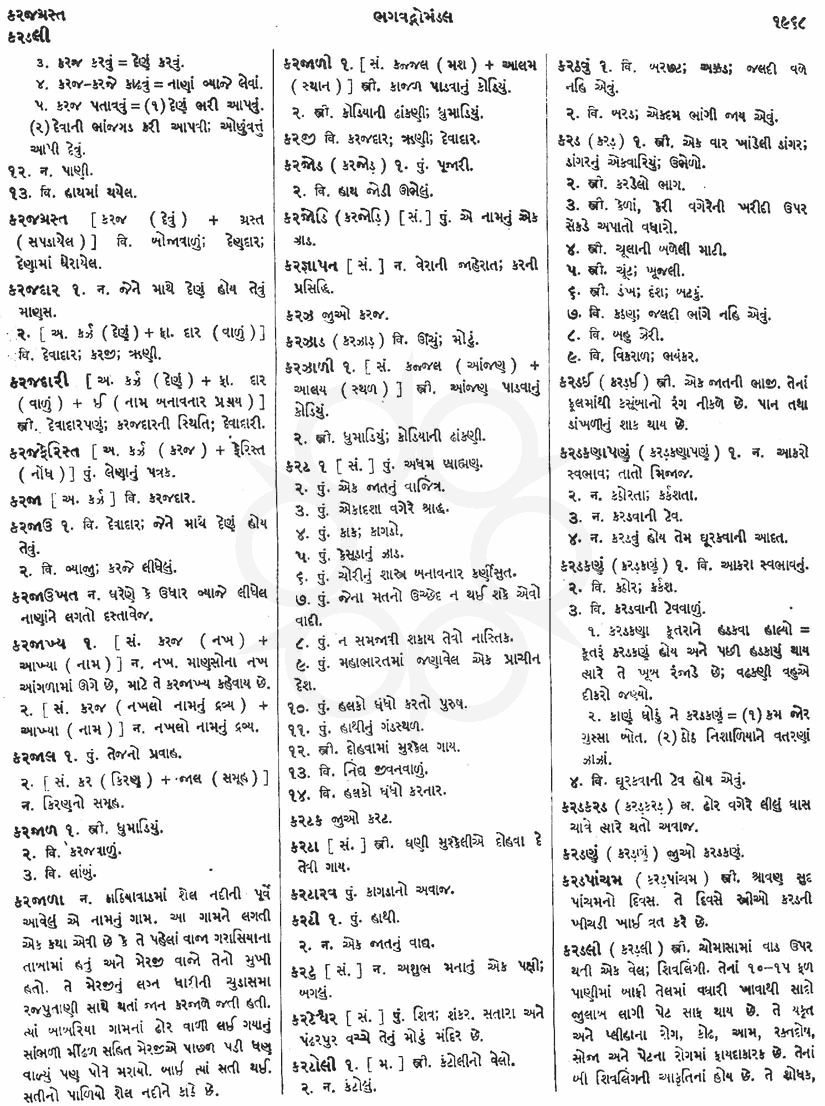 કરજગ્રસ્ત
કરડલી
ભગવદ્ગોમંડલ
૧૯૬૮
૩. કરજ કરવું = દેણું કરવું.
૪. કરજ-કરજે કાઢવું = નાણાં વ્યાજે લેવાં.
૫. કરજ પતાવવું = (૧) દેણું ભરી આપવું.
(૨) દેવાની ભાંજગડ કરી આપવી; ઓછુંવત્તું
આપી દેવું.
૧૨. ન. પાણી.
૧૩. વિ. હાથમાં થયેલ.
કરજગ્રસ્ત [ કરજ ( દેવું ) + ગ્રસ્ત
( સપડાયેલ ) ] વિ. બોજાવાળું; દેણદાર;
દેણામાં ઘેરાયેલ.
કરજદાર ૧. ન. જેને માથે દેણું હોય તેવું
માણસ.
૨. [ અ. કર્ઝ (દેણું) + ફા. દાર (વાળું) ]
વિ. દેવાદાર; કરજી; ઋણી.
કરજદારી [ અ. કર્ઝ ( દેણું ) + ફા. દાર
( વાળું ) + ઈ ( નામ બનાવનાર પ્રત્યય ) ]
સ્ત્રી. દેવાદારપણું; કરજદારની સ્થિતિ; દેવાદારી.
કરજફેરિસ્ત [ અ. કર્ઝ ( કરજ ) + ફેરિસ્ત
( નોંધ ) ] પું. લેણાનું પત્રક.
કરજા [ અ. કર્ઝ ] વિ. કરજદાર.
કરજાઉ ૧. વિ. દેવાદાર; જેને માથે દેણું હોય
તેવું.
૨. વિ. વ્યાજુ; કરજે લીધેલું.
કરજાઉખત ન. ઘરેણે કે ઉધાર વ્યાજે લીધેલ
નાણાંને લગતો દસ્તાવેજ.
કરજાખ્ય ૧. [ સં. કરજ ( નખ ) +
આખ્યા ( નામ ) ] ન. નખ. માણસોના નખ
આંગળામાં ઊગે છે, માટે તે કરજાખ્ય કહેવાય છે.
૨. [ સં. કરજ ( નખલો નામનું દ્રવ્ય ) +
આખ્યા ( નામ ) ] ન. નખલો નામનું દ્રવ્ય.
કરજાલ ૧. પું. તેજનો પ્રવાહ.
૨. [ સં. કર ( કિરણ ) + જાલ ( સમૂહ ) ]
ન. કિરણનો સમૂહ.
કરજાળ ૧. સ્ત્રી. ધુમાડિયું.
૨. વિ. કરજવાળું.
૩. વિ. લાંબું.
કરજાળા ન. કાઠિયાવાડમાં શેલ નદીની પૂર્વે
આવેલું એ નામનું ગામ. આ ગામને લગતી
એક કથા એવી છે કે તે પહેલાં વાજા ગરાસિયાના
તાબામાં હતું અને મેરજી વાજો તેનો મુખી
હતો. તે મેરજીનું લગ્ન ધારીની ચુડાસમા
રજપુતાણી સાથે થતાં જાન કરજાળે જતી હતી.
ત્યાં બાબરિયા ગામનાં ઢોર વાળી લઈ ગયાનું
સાંભળી મીંઢળ સહિત મેરજીએ પાછળ પડી ધણ
વાળ્યું પણ પોતે મરાયો. બાઈ ત્યાં સતી થઈ.
સતીનો પાળિયો શેલ નદીને કાંઠે છે.
કરજાળી ૧. [ સં. કજ્જલ ( મશ ) + આલમ
( સ્થાન ) ] સ્ત્રી. કાજળ પાડવાનું કોડિયું.
૨. સ્ત્રી. કોડિયાની ઢાંકણી; ધુમાડિયું.
કરજી વિ. કરજદાર; ઋણી; દેવાદાર.
કરજોડ ( કરજોડ઼ ) ૧. પું. પૂજારી.
૨. વિ. હાથ જોડી ઊભેલું.
કરજોડિ ( કરજોડ઼િ ) [ સં. ] પું. એ નામનું એક
ઝાડ.
કરજ્ઞાપન [ સં. ] ન. વેરાની જાહેરાત; કરની
પ્રસિદ્ધિ.
કરઝ જુઓ કરજ.
કરઝાડ ( કરઝાડ઼ ) વિ. ઊંચું; મોટું.
કરઝાળી ૧. [ સં. કજ્જલ ( આંજણ ) +
આલય ( સ્થળ ) ] સ્ત્રી. આંજણ પાડવાનું
કોડિયું.
૨. સ્ત્રી. ધુમાડિયું; કોડિયાની ઢાંકણી.
કરટ ૧ [ સં. ] પું. અધમ બ્રાહ્મણ.
૨. પું. એક જાતનું વાજિંત્ર.
૩. પું. એકાદશા વગેરે શ્રાદ્ધ.
૪. પું. કાક; કાગડો.
૫. પું. કેસૂડાનું ઝાડ.
૬. પું. ચોરીનું શાસ્ત્ર બનાવનાર કર્ણીસુત.
૭. પું. જેના મતનો ઉચ્છેદ ન થઈ શકે એવો
વાદી.
૮. પું. ન સમજાવી શકાય તેવો નાસ્તિક.
૯. પું. મહાભારતમાં જણાવેલ એક પ્રાચીન
દેશ.
૧૦. પું. હલકો ધંધો કરતો પુરુષ.
૧૧. પું. હાથીનું ગંડસ્થળ.
૧૨. સ્ત્રી. દોહવામાં મુશ્કેલ ગાય.
૧૩. વિ. નિંદ્ય જીવનવાળું.
૧૪. વિ. હલકો ધંધો કરનાર.
કરટક જુઓ કરટ.
કરટા [ સં. ] સ્ત્રી. ઘણી મુશ્કેલીએ દોહવા દે
તેવી ગાય.
કરટારવ પું. કાગડાનો અવાજ.
કરટી ૧. પું. હાથી.
૨. ન. એક જાતનું વાદ્ય.
કરટુ [ સં. ] ન. અશુભ મનાતું એક પક્ષી;
બગલું.
કરટેશ્વર [ સં. ] પું. શિવ; શંકર. સતારા અને
પંઢરપુર વચ્ચે તેનું મોટું મંદિર છે.
કરટોલી ૧. [ મ. ] સ્ત્રી. કંટોલીનો વેલો.
૨. ન. કંટોલું.
કરઠવું ૧. વિ. બરછટ; અક્કડ; જલદી વળે
નહિ એવું.
૨. વિ. બરડ; એકદમ ભાંગી જાય એવું.
કરડ ( કરડ઼ ) ૧. સ્ત્રી. એક વાર ખાંડેલી ડાંગર;
ડાંગરનું એકવારિયું; ઉભેળો.
૨. સ્ત્રી. કરડેલો ભાગ.
૩. સ્ત્રી. કેળાં, કેરી વગેરેની ખરીદી ઉપર
સેંકડે અપાતો વધારો.
૪. સ્ત્રી. ચૂલાની બળેલી માટી.
૫. સ્ત્રી. ચૂંટ; ખૂજલી.
૬. સ્ત્રી. ડંખ; દંશ; બટકું.
૭. વિ. કઠણ; જલદી ભાંગે નહિ એવું.
૮. વિ. બહુ ઝેરી.
૯. વિ. વિકરાળ; ભયંકર.
કરડઈ ( કરડ઼ઈ ) સ્ત્રી. એક જાતની ભાજી. તેનાં
ફૂલમાંથી કસૂંબાનો રંગ નીકળે છે. પાન તથા
ડાંખળીનું શાક થાય છે.
કરડકણાપણું ( કરડ઼કણાપણું ) ૧. ન. આકરો
સ્વભાવ; તાતો મિજાજ.
૨. ન. કઠોરતા; કર્કશતા.
૩. ન. કરડવાની ટેવ.
૪. ન. કરડવું હોય તેમ ઘૂરકવાની આદત.
કરડકણું ( કરડ઼કણું ) ૧. વિ. આકરા સ્વભાવનું.
૨. વિ. કઠોર; કર્કશ.
૩. વિ. કરડવાની ટેવવાળું.
૧. કરડકણા કૂતરાને હડકવા હાલ્યો =
કૂતરું કરડકણું હોય અને પછી હડકાયું થાય
ત્યારે તે ખૂબ રંજાડે છે; વઢકણી વહુએ
દીકરો જણ્યો.
૨. કાણું ઘોડું ને કરડકણું = (૧) કમ જોર
ગુસ્સા બોત. (૨) ઠોઠ નિશાળિયાને વતરણાં
ઝાઝાં.
૪. વિ. ઘૂરકવાની ટેવ હોય એવું.
કરડકરડ ( કરડ઼કરડ઼ ) અ. ઢોર વગેરે લીલું ઘાસ
ચાવે ત્યારે થતો અવાજ.
કરડણું ( કરડ઼ણું ) જુઓ કરડકણું.
કરડપાંચમ ( કરડ઼પાંચમ ) સ્ત્રી. શ્રાવણ સુદ
પાંચમનો દિવસ. તે દિવસે સ્ત્રીઓ કરડની
ખીચડી ખાઈ વ્રત કરે છે.
કરડલી ( કરડ઼લી ) સ્ત્રી. ચોમાસામાં વાડ ઉપર
થતી એક વેલ; શિવલિંગી. તેનાં ૧૦-૧૫ ફળ
પાણીમાં બાફી તેલમાં વઘારી ખાવાથી સારો
જુલાબ લાગી પેટ સાફ થાય છે. તે યકૃત
અને પ્લીહાના રોગ, કોઢ, આમ, રક્તદોષ,
સોજા અને પેટના રોગમાં ફાયદાકારક છે. તેનાં
બી શિવલિંગની આકૃતિનાં હોય છે. તે શોધક,